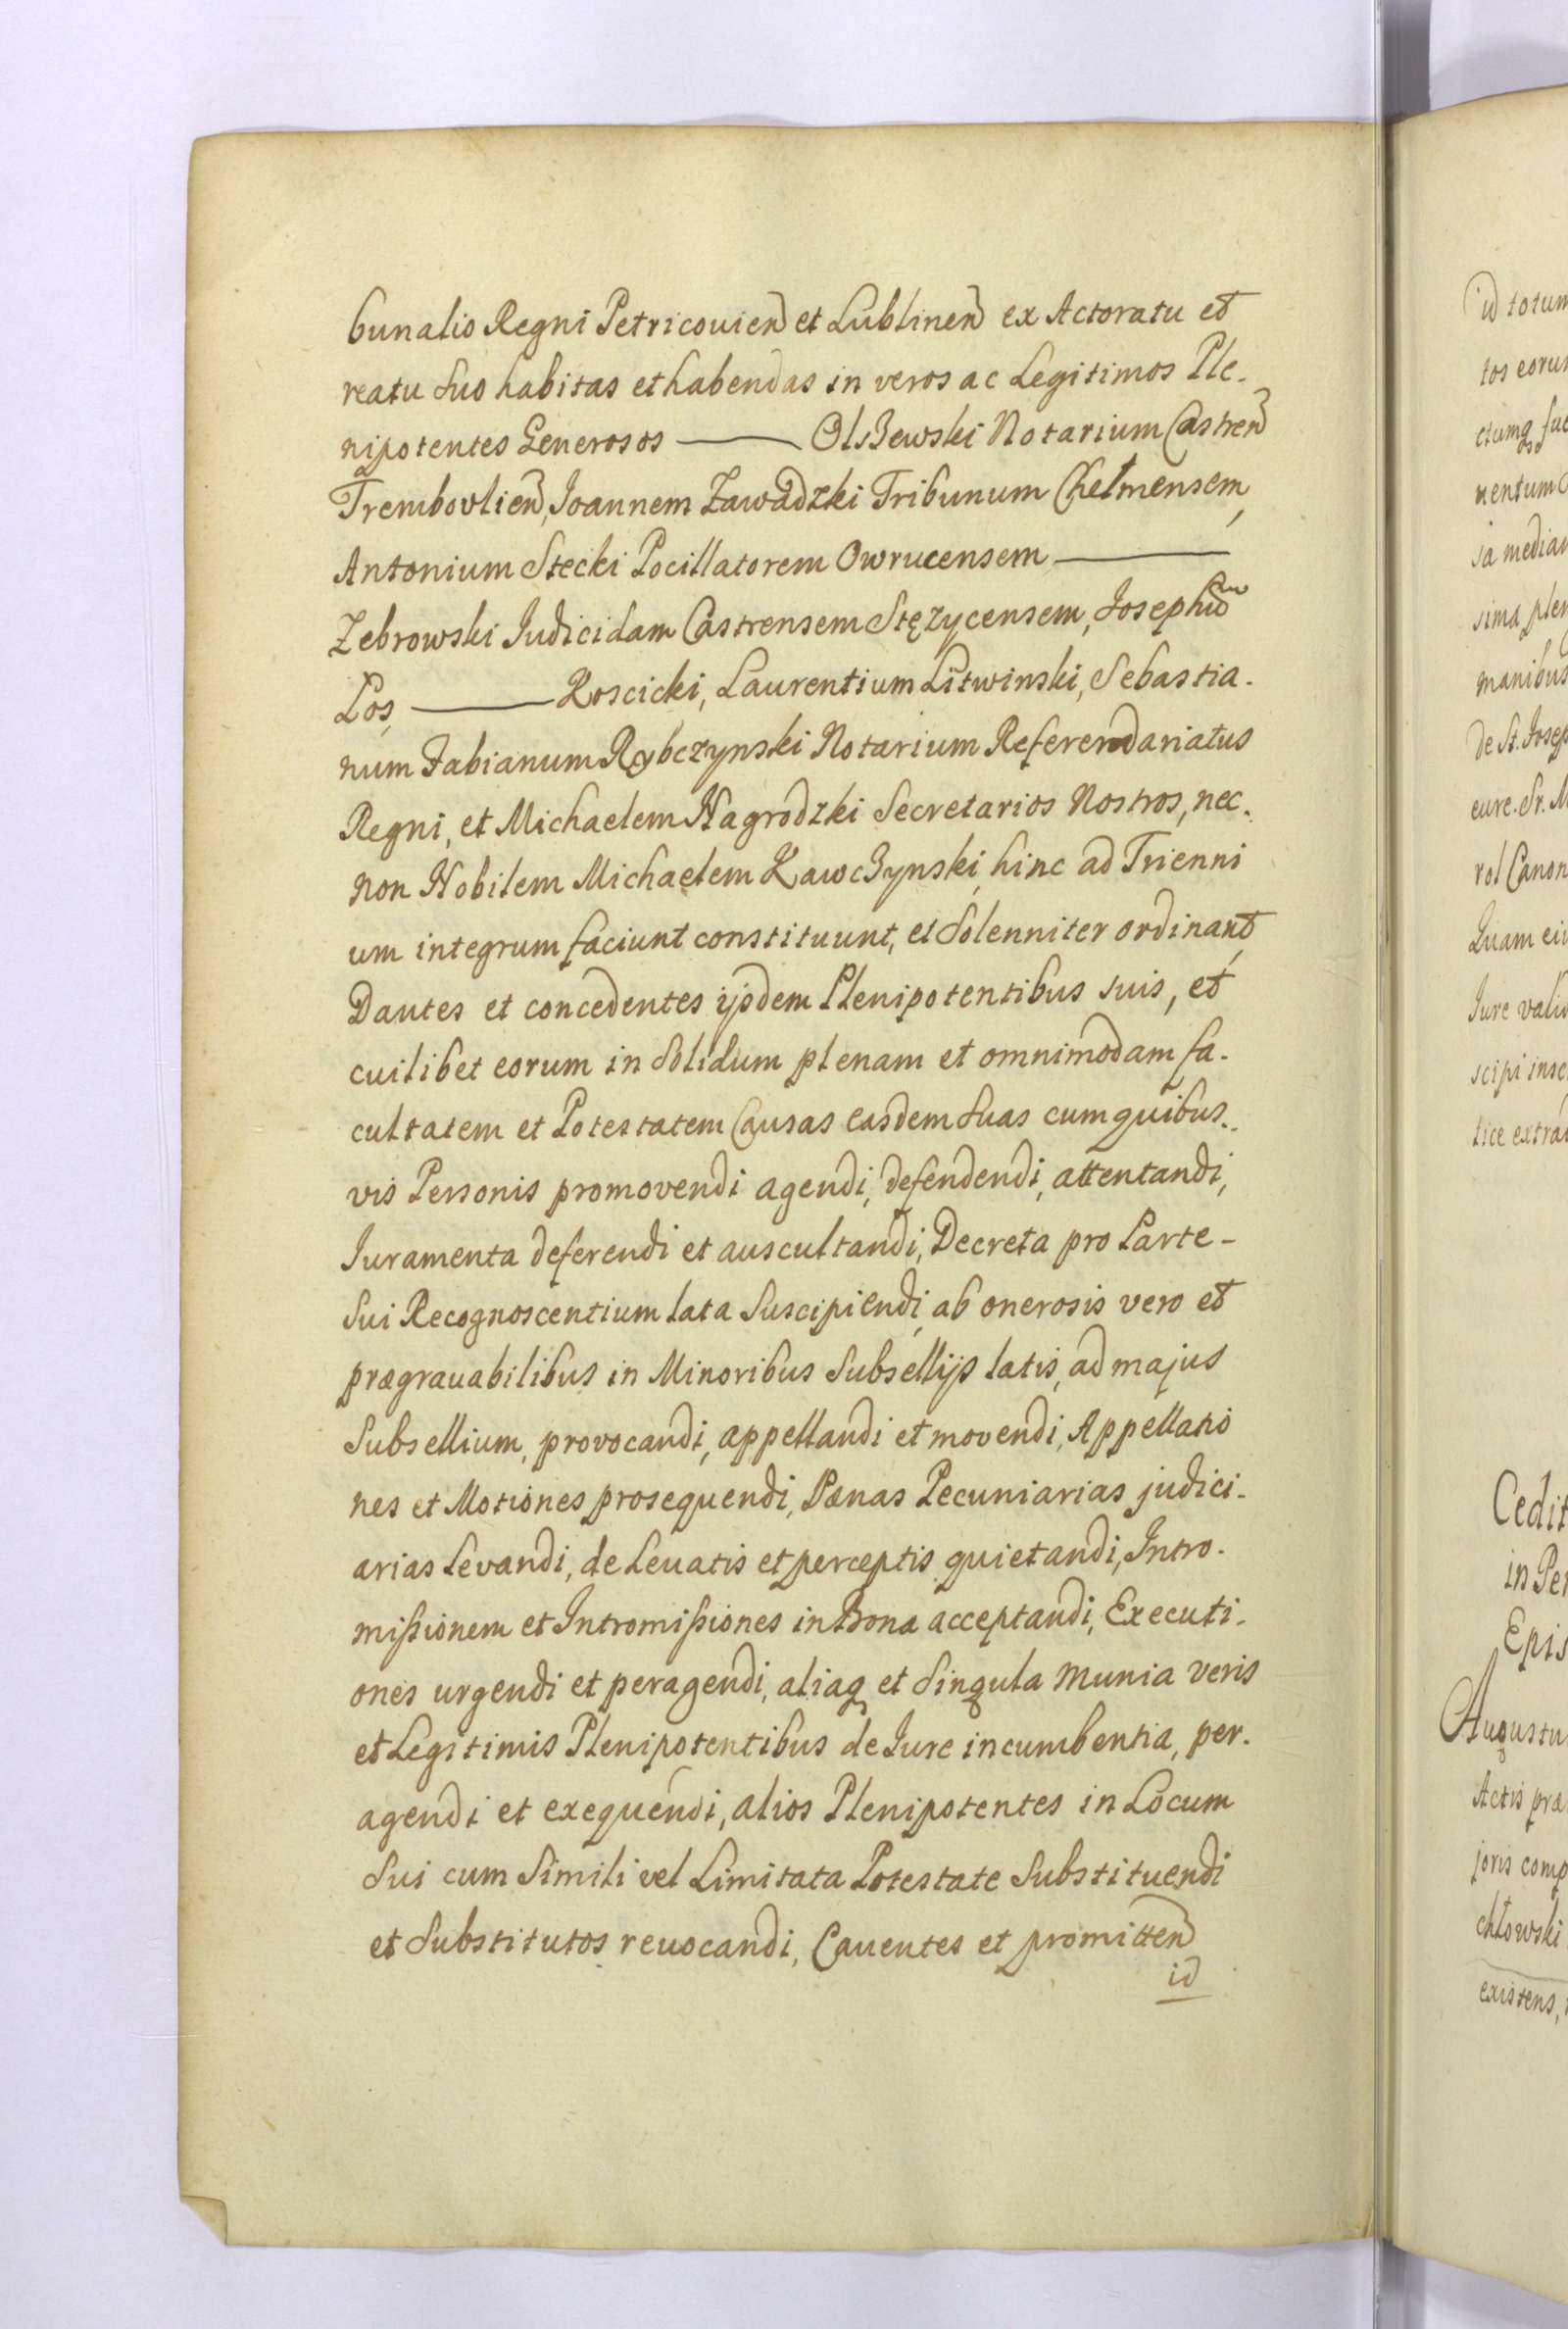 bunalio Regni Petricovien et Lublinen ex Actoratu et
reatu Suo habitas et habendas in veros ac Legitimos Ple-
nipotentes Generosos ——— Olszewski Notarium Castren
Trembovlien, Joannem Zawadzki Tribunum Chełmensem,
Antonium Stecki Pocillatorem Owrucensem ———
Zebrowski Judicidam Castrensem Stęzycensem, Josephum
Łoś, ——— Roscicki, Laurentium Litwinski, Sebastia-
num Fabianum Rybczynski Notarium Referendariatus
Regni, et Michaelem Nagrodzki Secretarios Nostros, nec-
non Nobilem Michaelem Kawczynski, hinc ad Trienni
um integrum faciunt constituunt, et Solenniter ordinant,
Dantes et concedentes ijsdem Plenipotentibus suis, et
cuilibet eorum in Solidum plenam et omnimodam fa-
cultatem et Potestatem Causas easdem Suas cum quibus-
vis Personis promovendi agendi, defendendi, attentandi,
Juramenta deferendi et auscultandi, Decreta pro Parte-
Sui Recognoscentium lata Suscipiendi, ab onerosis vero et
prægrauabilibus in Minoribus Subsellijs latis, ad majus
Subsellium, provocandi, appellandi et movendi, Appellatio
nes et Motiones prosequendi, Pænas Pecuniarias judici-
arias Levandi, de Leuatis et perceptis quietandi, Intro-
missionem et Intromissiones in Bona acceptandi, Executi-
ones urgendi et peragendi, aliaq et Singula Munia veris
et Legitimis Plenipotentibus de Jure incumbentia, per-
agendi et exequendi, alios Plenipotentes in Locum
Sui cum Simili vel Limitata Potestate Substituendi
et Substitutos reuocandi, Cauentes et promitten
id
id totum
tos eorum
ctumq
nentum
sa median
sima plen
manibus
de St. Josep
eure. Sr. M
rol Canon
Quam
Jure valid
scipi inse
tice extra
Cedit
in Per
Epis
Augustu
Actis præ
joris comp
chłowski
existens,